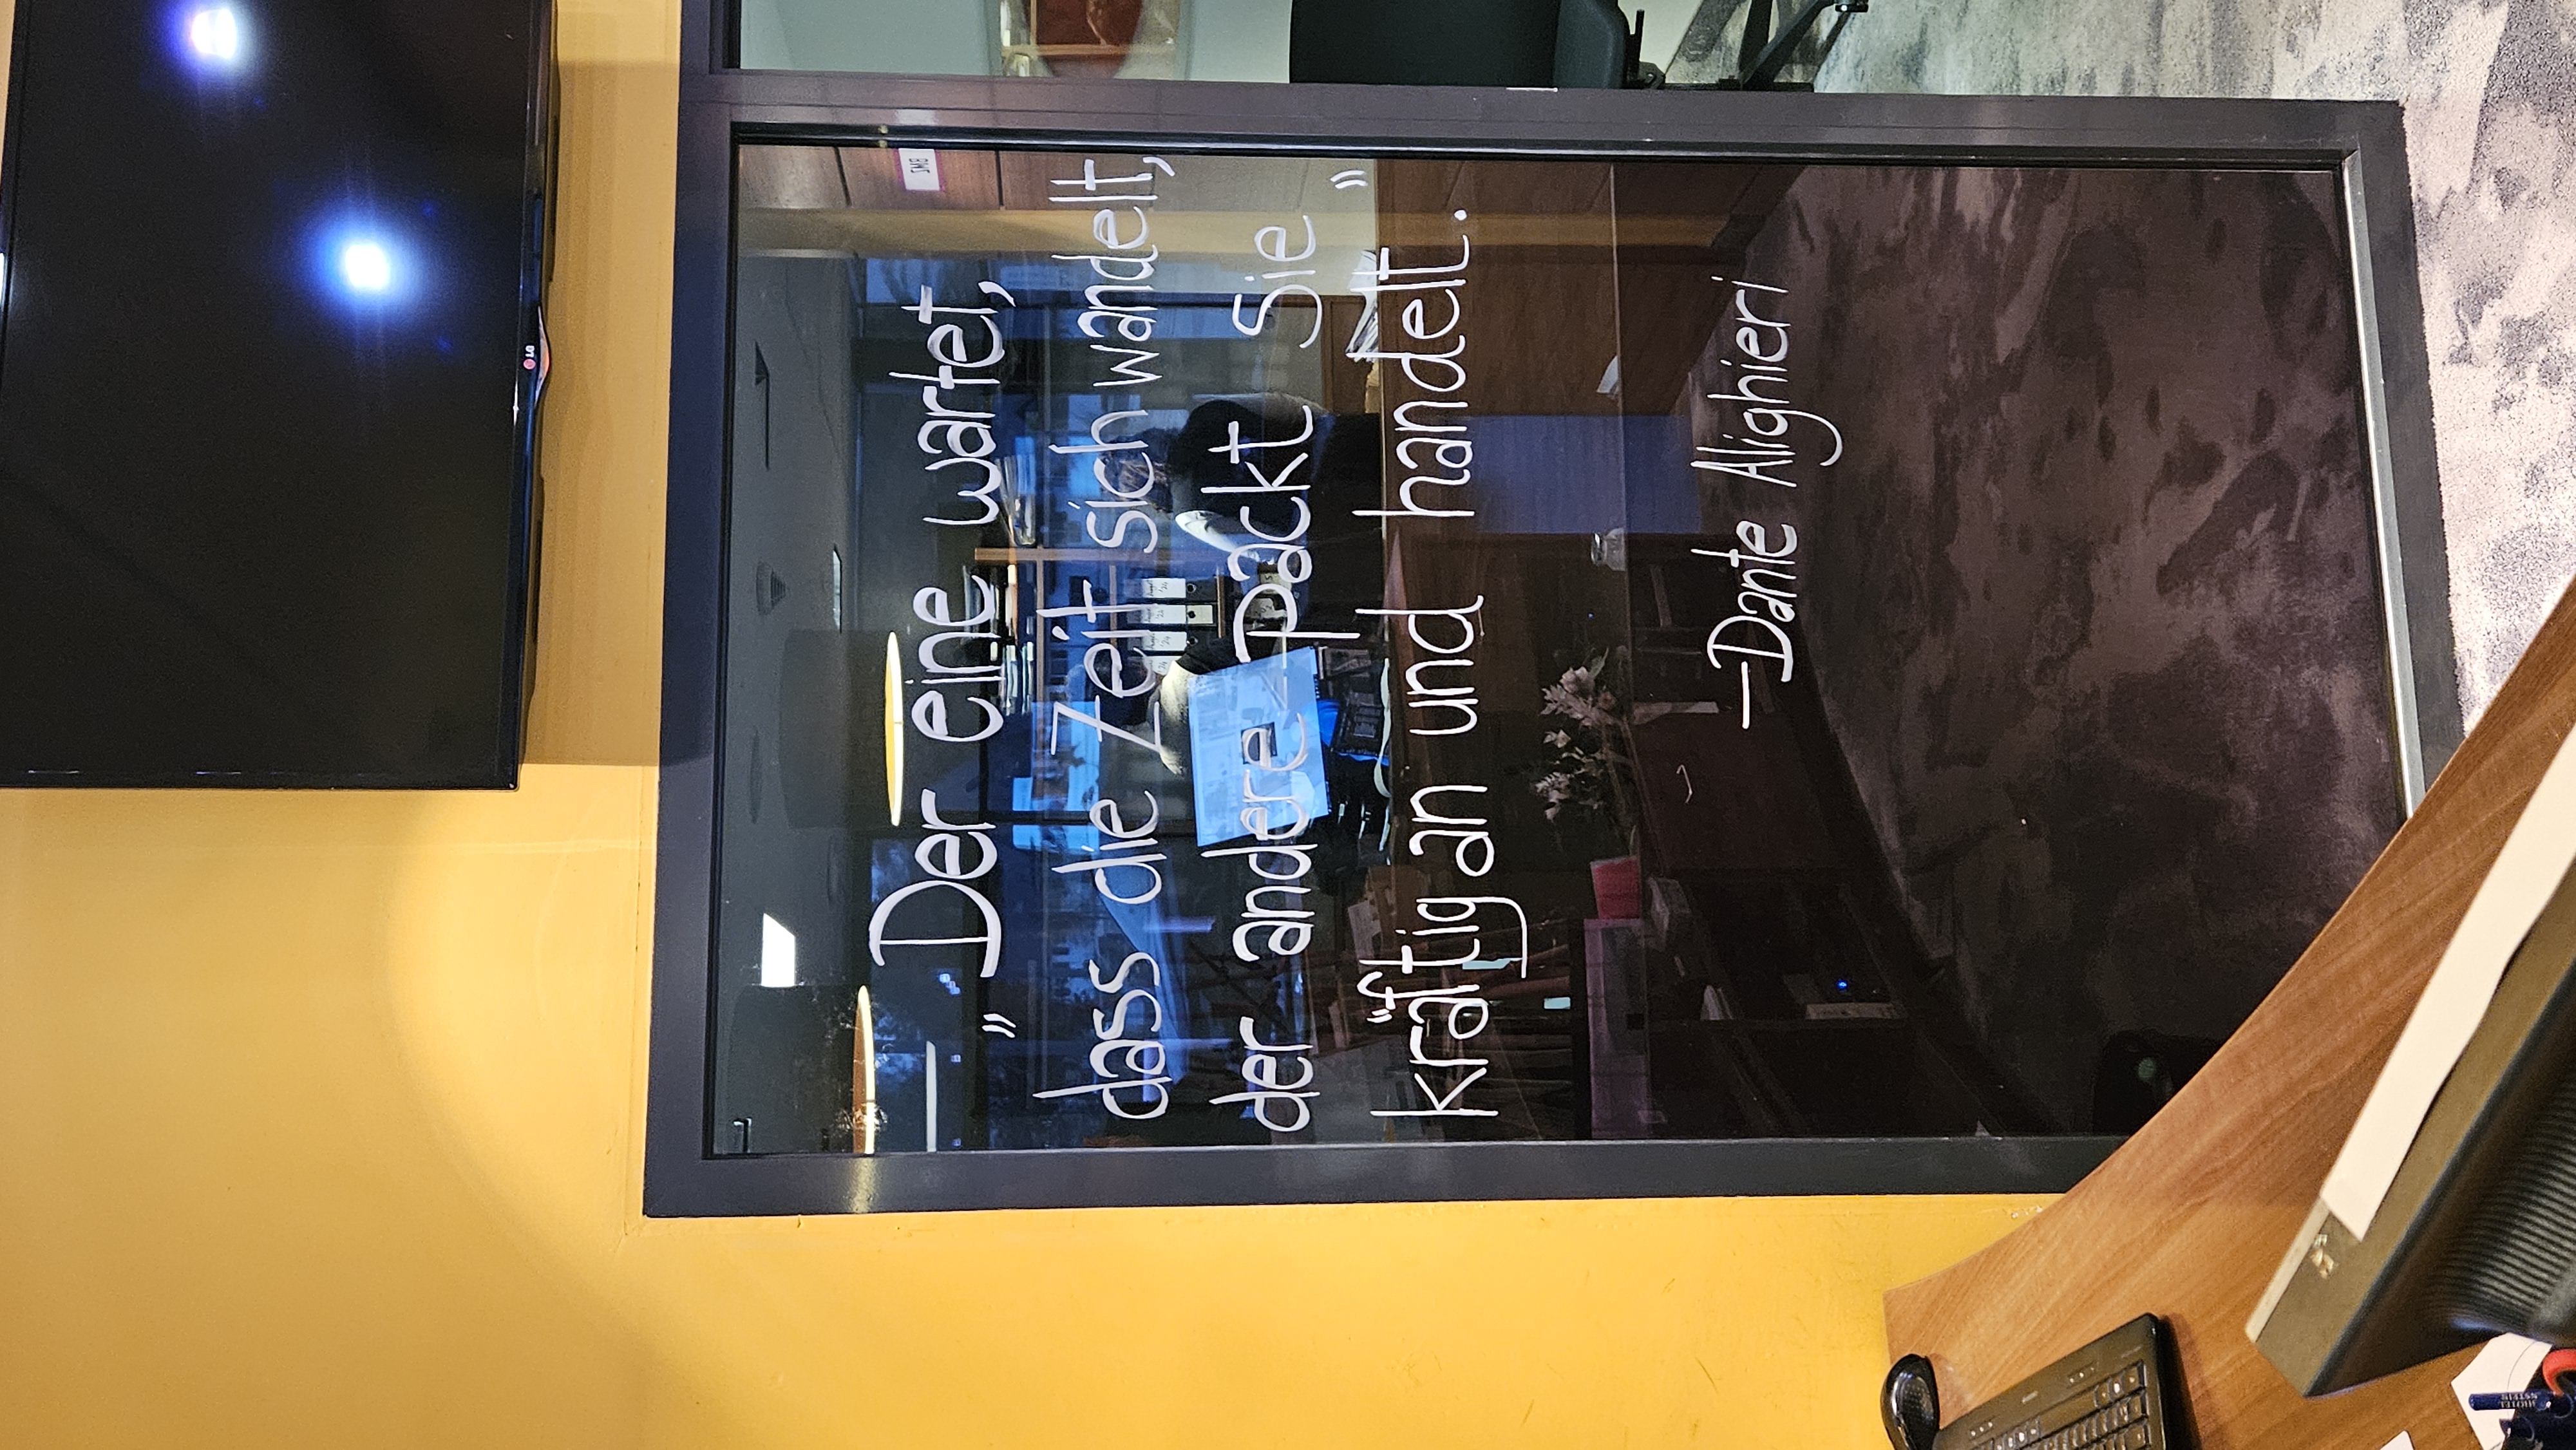 — „ Der eine wartet,
dass die Zeit sich wandelt,
der andere packt Sie
kräftig an und handelt. "
— Dante Alighieri
LG
SMB